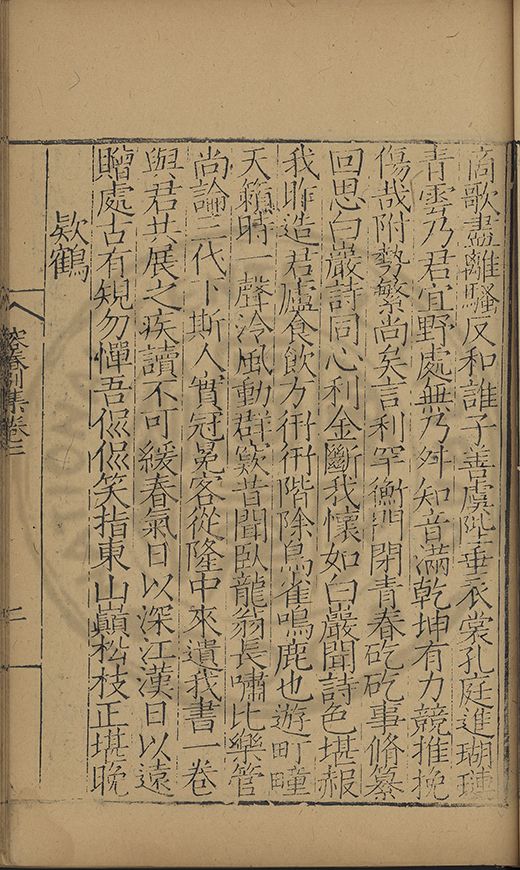 商歌盡離騷反和誰子善虞陛垂衣裳孔庭進瑚璉
青雲乃君宜野處無乃舛知音滿乾坤有力競推挽
傷哉附勢繁尚矣言利罕衡門閉青春矻矻事脩纂
回思白巖詩同心利金斷我懷如白巖聞詩色堪赧
我昨造君廬食飲方衎衎階除鳥雀鳴鹿也遊町疃
天籟時一聲泠風動群竅昔聞臥龍翁長嘯比樂管
尚論三代下斯人實冠冕客從隆中來遺我書一卷
與君共展之疾讀不可緩春氣日以深江漢日以遠
贈處古有規勿憚吾侃侃笑指東山巔松枝正堪晚
欵鶴
集卷二
二